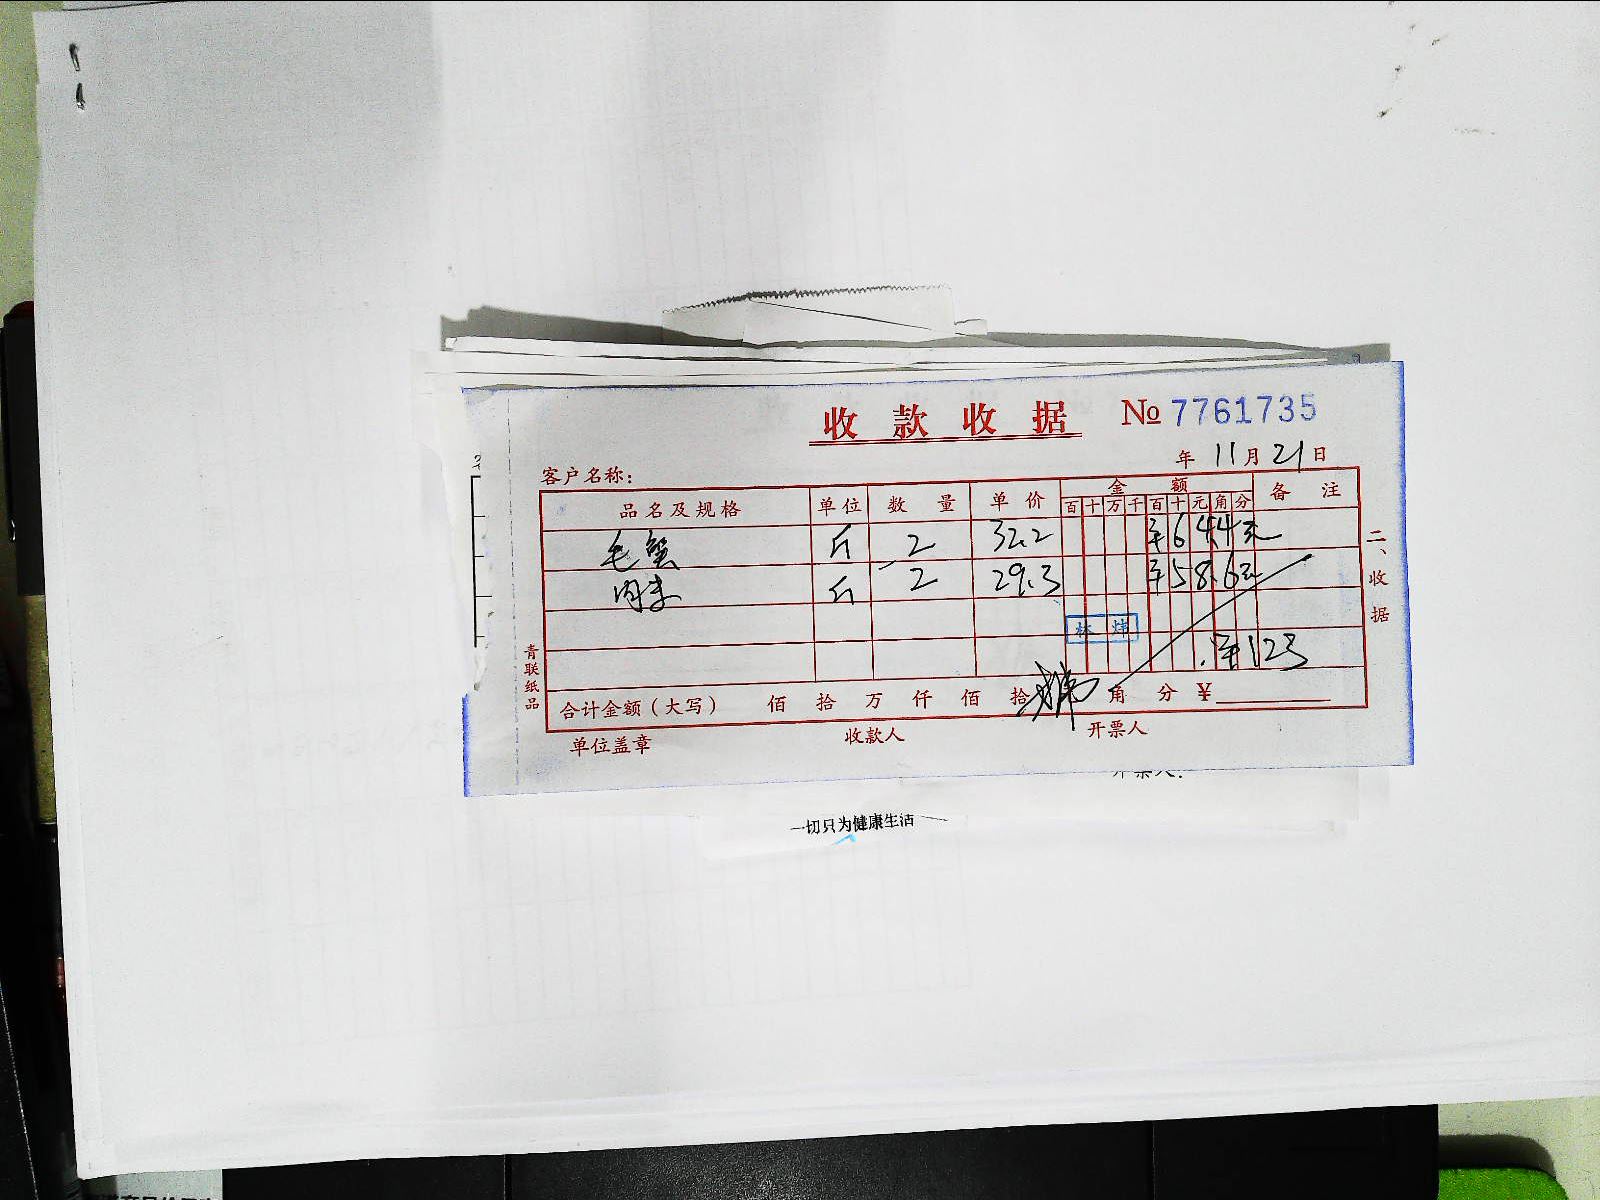 收款收据 № 7761735
年 11 月 21 日
客户名称：
品名及规格 单位 数量 单价 金额 备注
百 十 万 千 百 十 元 角 分
毛蟹 斤 2 32.2 ¥64.4元
肉末 斤 2 29.3 ¥58.6元
林炜
¥123
合计金额（大写） 佰 拾 万 仟 佰 拾 角 分 ¥
单位盖章 收款人 开票人
二、收据
青联纸品
开票人：
一切只为健康生活